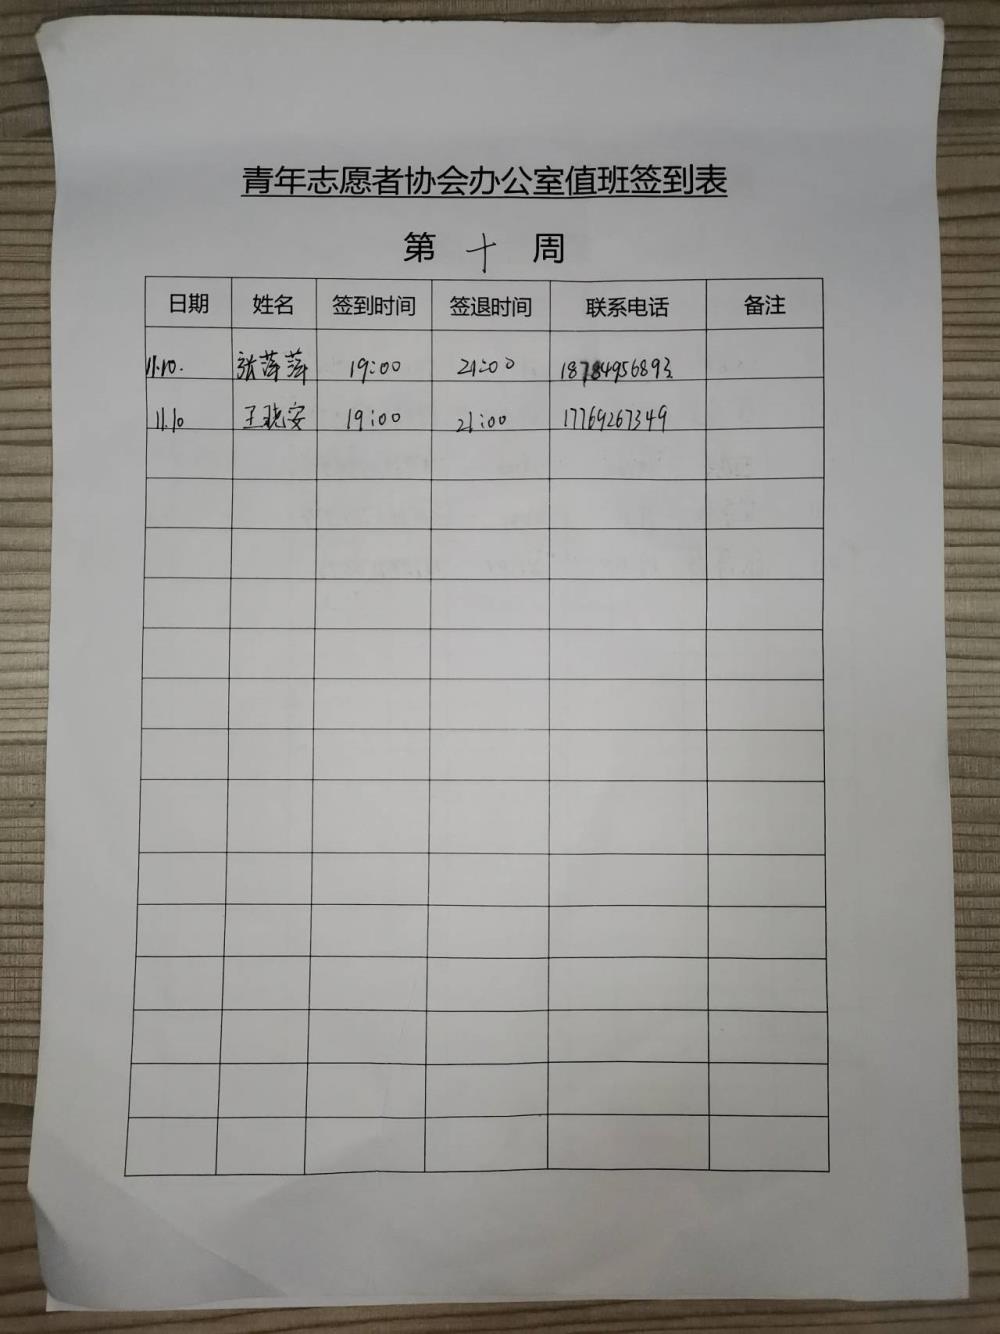 青年志愿者协会办公室值班签到表
第 十 周
日期 姓名 签到时间 签退时间 联系电话 备注
11.10. 张萍萍 19:00 21:00 18784956893
11.10 王晓安 19:00 21:00 17769267349